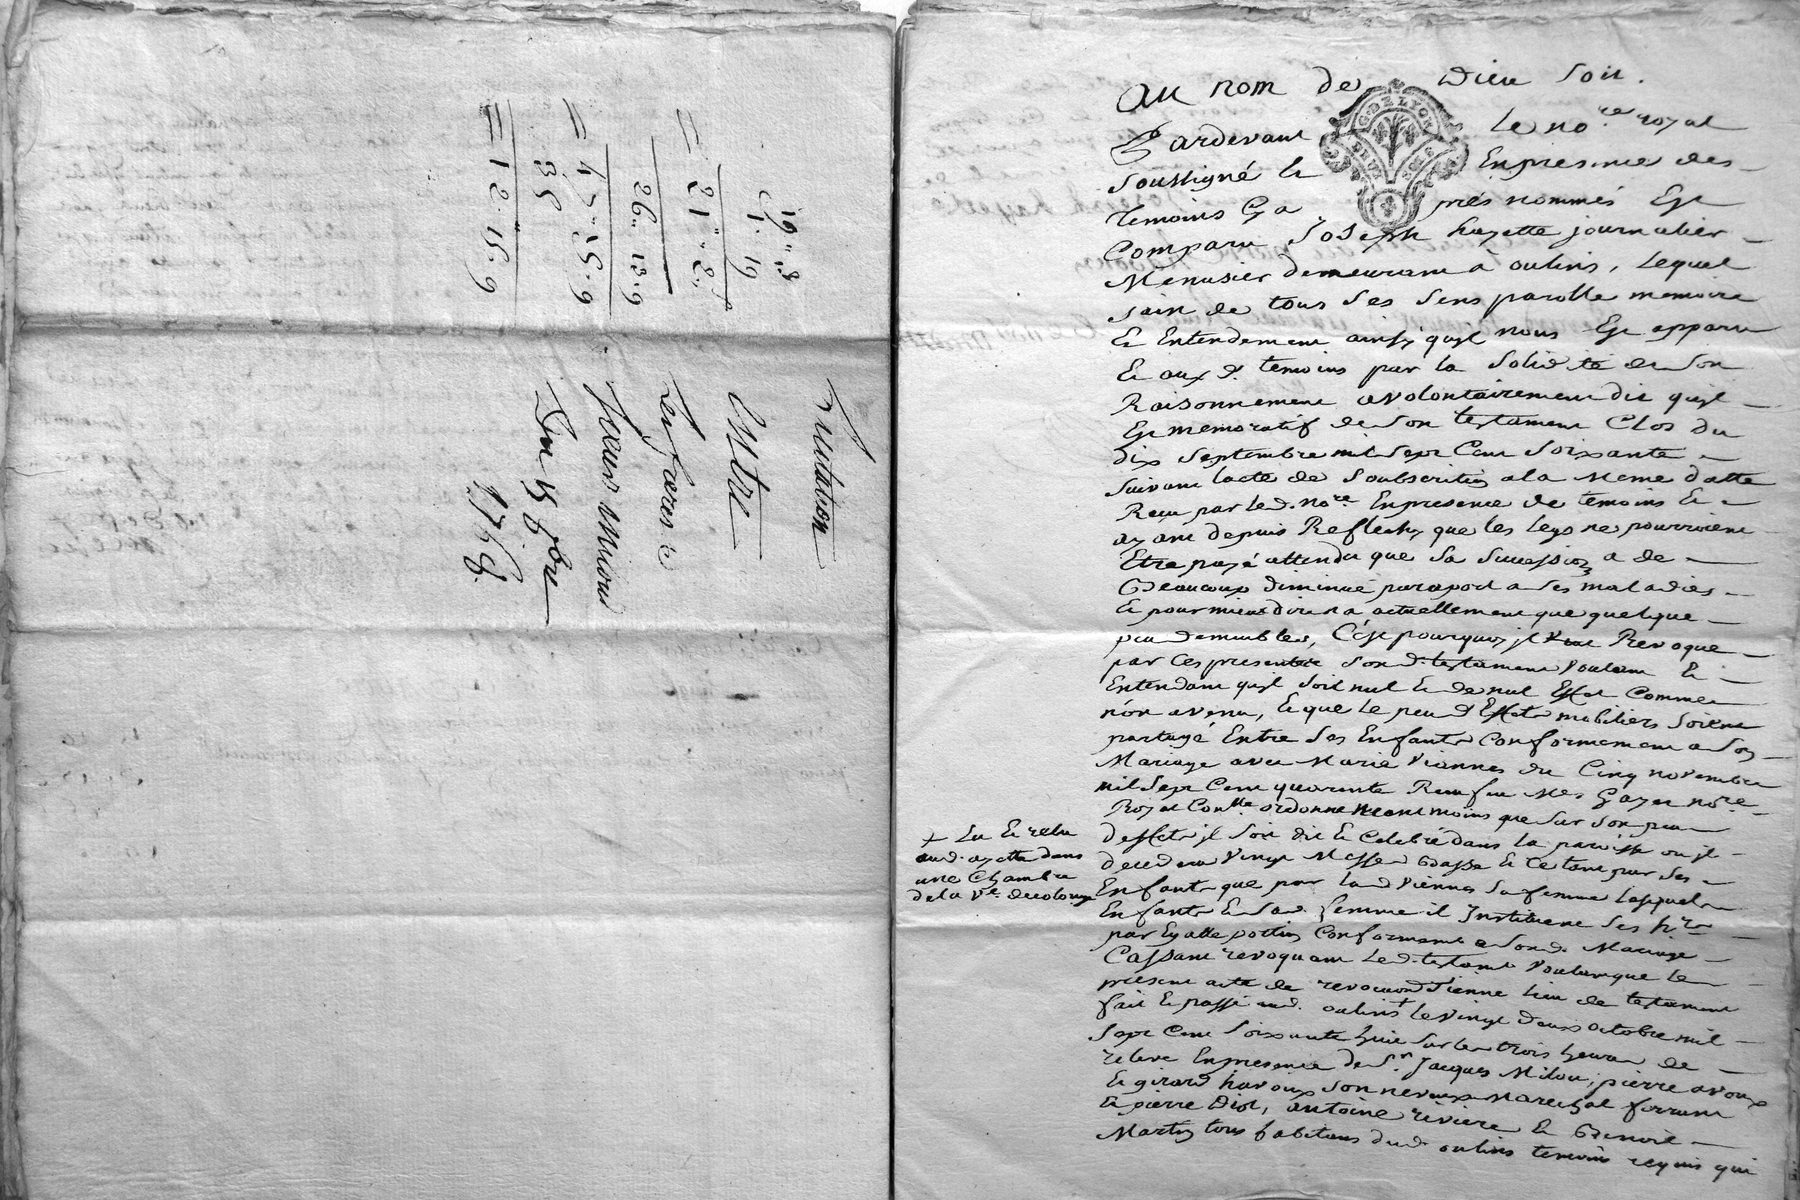 19 " 3
1 . 19
= 21 " 2
26 " 13 . 9
= 47 " 15 . 9
35
= 12 " 15 . 9
Entre
Les freres
Du 15 9bre
1768.
Au nom de Dieu soit.
Pardevant Le no.re royal
G. DE LYON
DEUX SOLS
soussigné & En presence des
temoins Cy a prés nommés Est
Comparu Joseph hayette journalier
Menusier demeurant a oulins, Lequel
sain de tous ses sens parolle memoire
& Entendement ainsy qu'il nous Est apparu
& aux d. temoins par la solidité de son
Raisonnement a volontairement dit qu'il
Est memoratif de son testament Clos du
dix septembre mil sept Cent soixante
suivant l'acte de soubscrition a la meme datte
Receu par led. no.re En presence de temoins &
ayant depuis Reflechy que les legs ne pourroient
Etre payé attendu que sa succession a de
Beaucoup diminué paraport a ses maladies
& pour mieux dire n'a actuellement que quelque
peu de meubles, C'est pourquoy il Revoque
par Ces presentes son d. testament voulant &
Entendant qu'il soit nul & de nul Effet Comme
non avenu, & que le peu d'Effets mobiliers soient
partagé Entre ses Enfants Conformement a son
Mariage avec Marie Viannes du Cinq novembre
mil sept Cent quarente Receu feu Me Gayet no.re
Royal ordonne neantmoins que sur son peu
d'effets il soit dit & Celebré dans la paroisse ou il
decedera vingt Messes Basse & Ce tant par ses
+ Lu & relu
aud. ayette dans
une Chambre
de la Ve.
Enfants que par lad. Viennes sa femme Lesquels
Enfants & sad. femme il Institue ses h.ers
par Egalle portion Conformement a sond. Mariage
Cassant revoquant led. testament voulant que le
present acte de revocation tienne lieu de testament
fait & passé aud. oulins + le vingt deux octobre mil
sept Cent soixante huit sur les trois heures de
relevé En presence de Sr. Jacques Milou, pierre
& girard son neveux Marechal
& pierre Diot, antoine riviere & Benoit
Martin tous habitans dud. oulins temoins requis qui